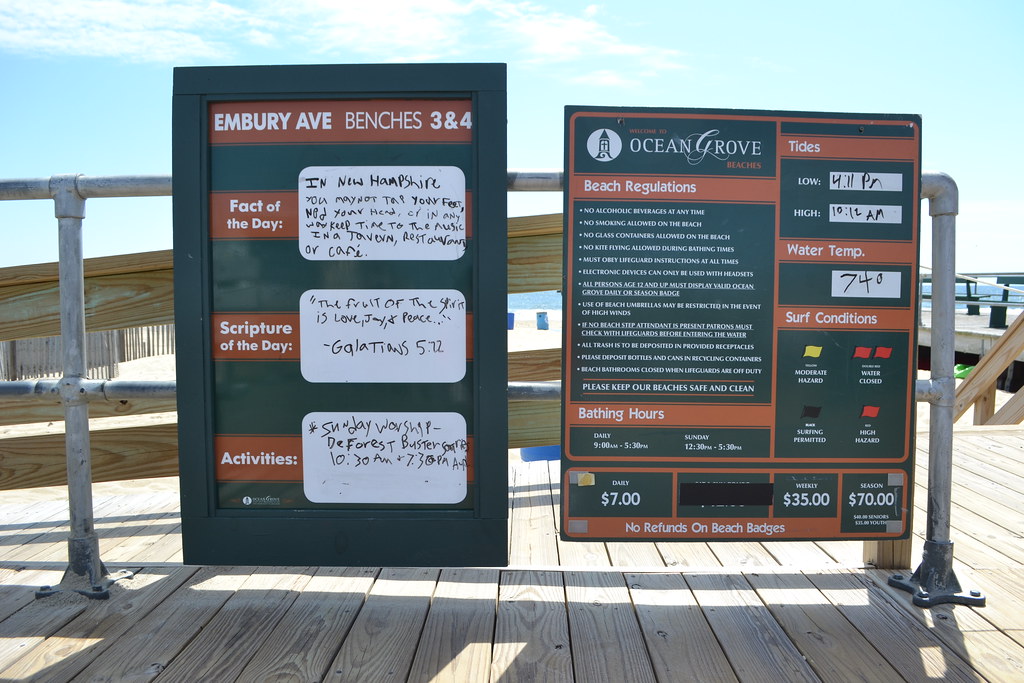 EMBURY AVE BENCHES 3&4
Fact of
the Day:
IN NEW HAMPSHIRE
YOU MAY NOT TAP YOUR FEET,
NOD YOUR HEAD, OR IN ANY
WAY KEEP TIME TO THE MUSIC
IN A TAVERN, RESTAURANT
OR CAFE.
Scripture
of the Day:
"The Fruit OF The Spirit
is Love, Joy, & Peace...
-Galations 5:22
Activities:
* SUNDAY WORSHIP-
DeForest Buster
10:30 AM + 7:30 PM
OCEAN GROVE
WELCOME TO
OCEAN GROVE
BEACHES
Beach Regulations
• NO ALCOHOLIC BEVERAGES AT ANY TIME
• NO SMOKING ALLOWED ON THE BEACH
• NO GLASS CONTAINERS ALLOWED ON THE BEACH
• NO KITE FLYING ALLOWED DURING BATHING TIMES
• MUST OBEY LIFEGUARD INSTRUCTIONS AT ALL TIMES
• ELECTRONIC DEVICES CAN ONLY BE USED WITH HEADSETS
• ALL PERSONS AGE 12 AND UP MUST DISPLAY VALID OCEAN
GROVE DAILY OR SEASON BADGE
• USE OF BEACH UMBRELLAS MAY BE RESTRICTED IN THE EVENT
OF HIGH WINDS
• IF NO BEACH STEP ATTENDANT IS PRESENT PATRONS MUST
CHECK WITH LIFEGUARDS BEFORE ENTERING THE WATER
• ALL TRASH IS TO BE DEPOSITED IN PROVIDED RECEPTACLES
• PLEASE DEPOSIT BOTTLES AND CANS IN RECYCLING CONTAINERS
• BEACH BATHROOMS CLOSED WHEN LIFEGUARDS ARE OFF DUTY
PLEASE KEEP OUR BEACHES SAFE AND CLEAN
Bathing Hours
DAILY
9:00AM - 5:30PM
SUNDAY
12:30PM - 5:30PM
Tides
LOW: 4:11 PM
HIGH: 10:12 AM
Water Temp.
74°
Surf Conditions
YELLOW
MODERATE
HAZARD
WATER
CLOSED
BLACK
SURFING
PERMITTED
RED
HIGH
HAZARD
DAILY
$7.00
WEEKLY
$35.00
SEASON
$70.00
$40.00 SENIORS
$35.00 YOUTH
No Refunds On Beach Badges